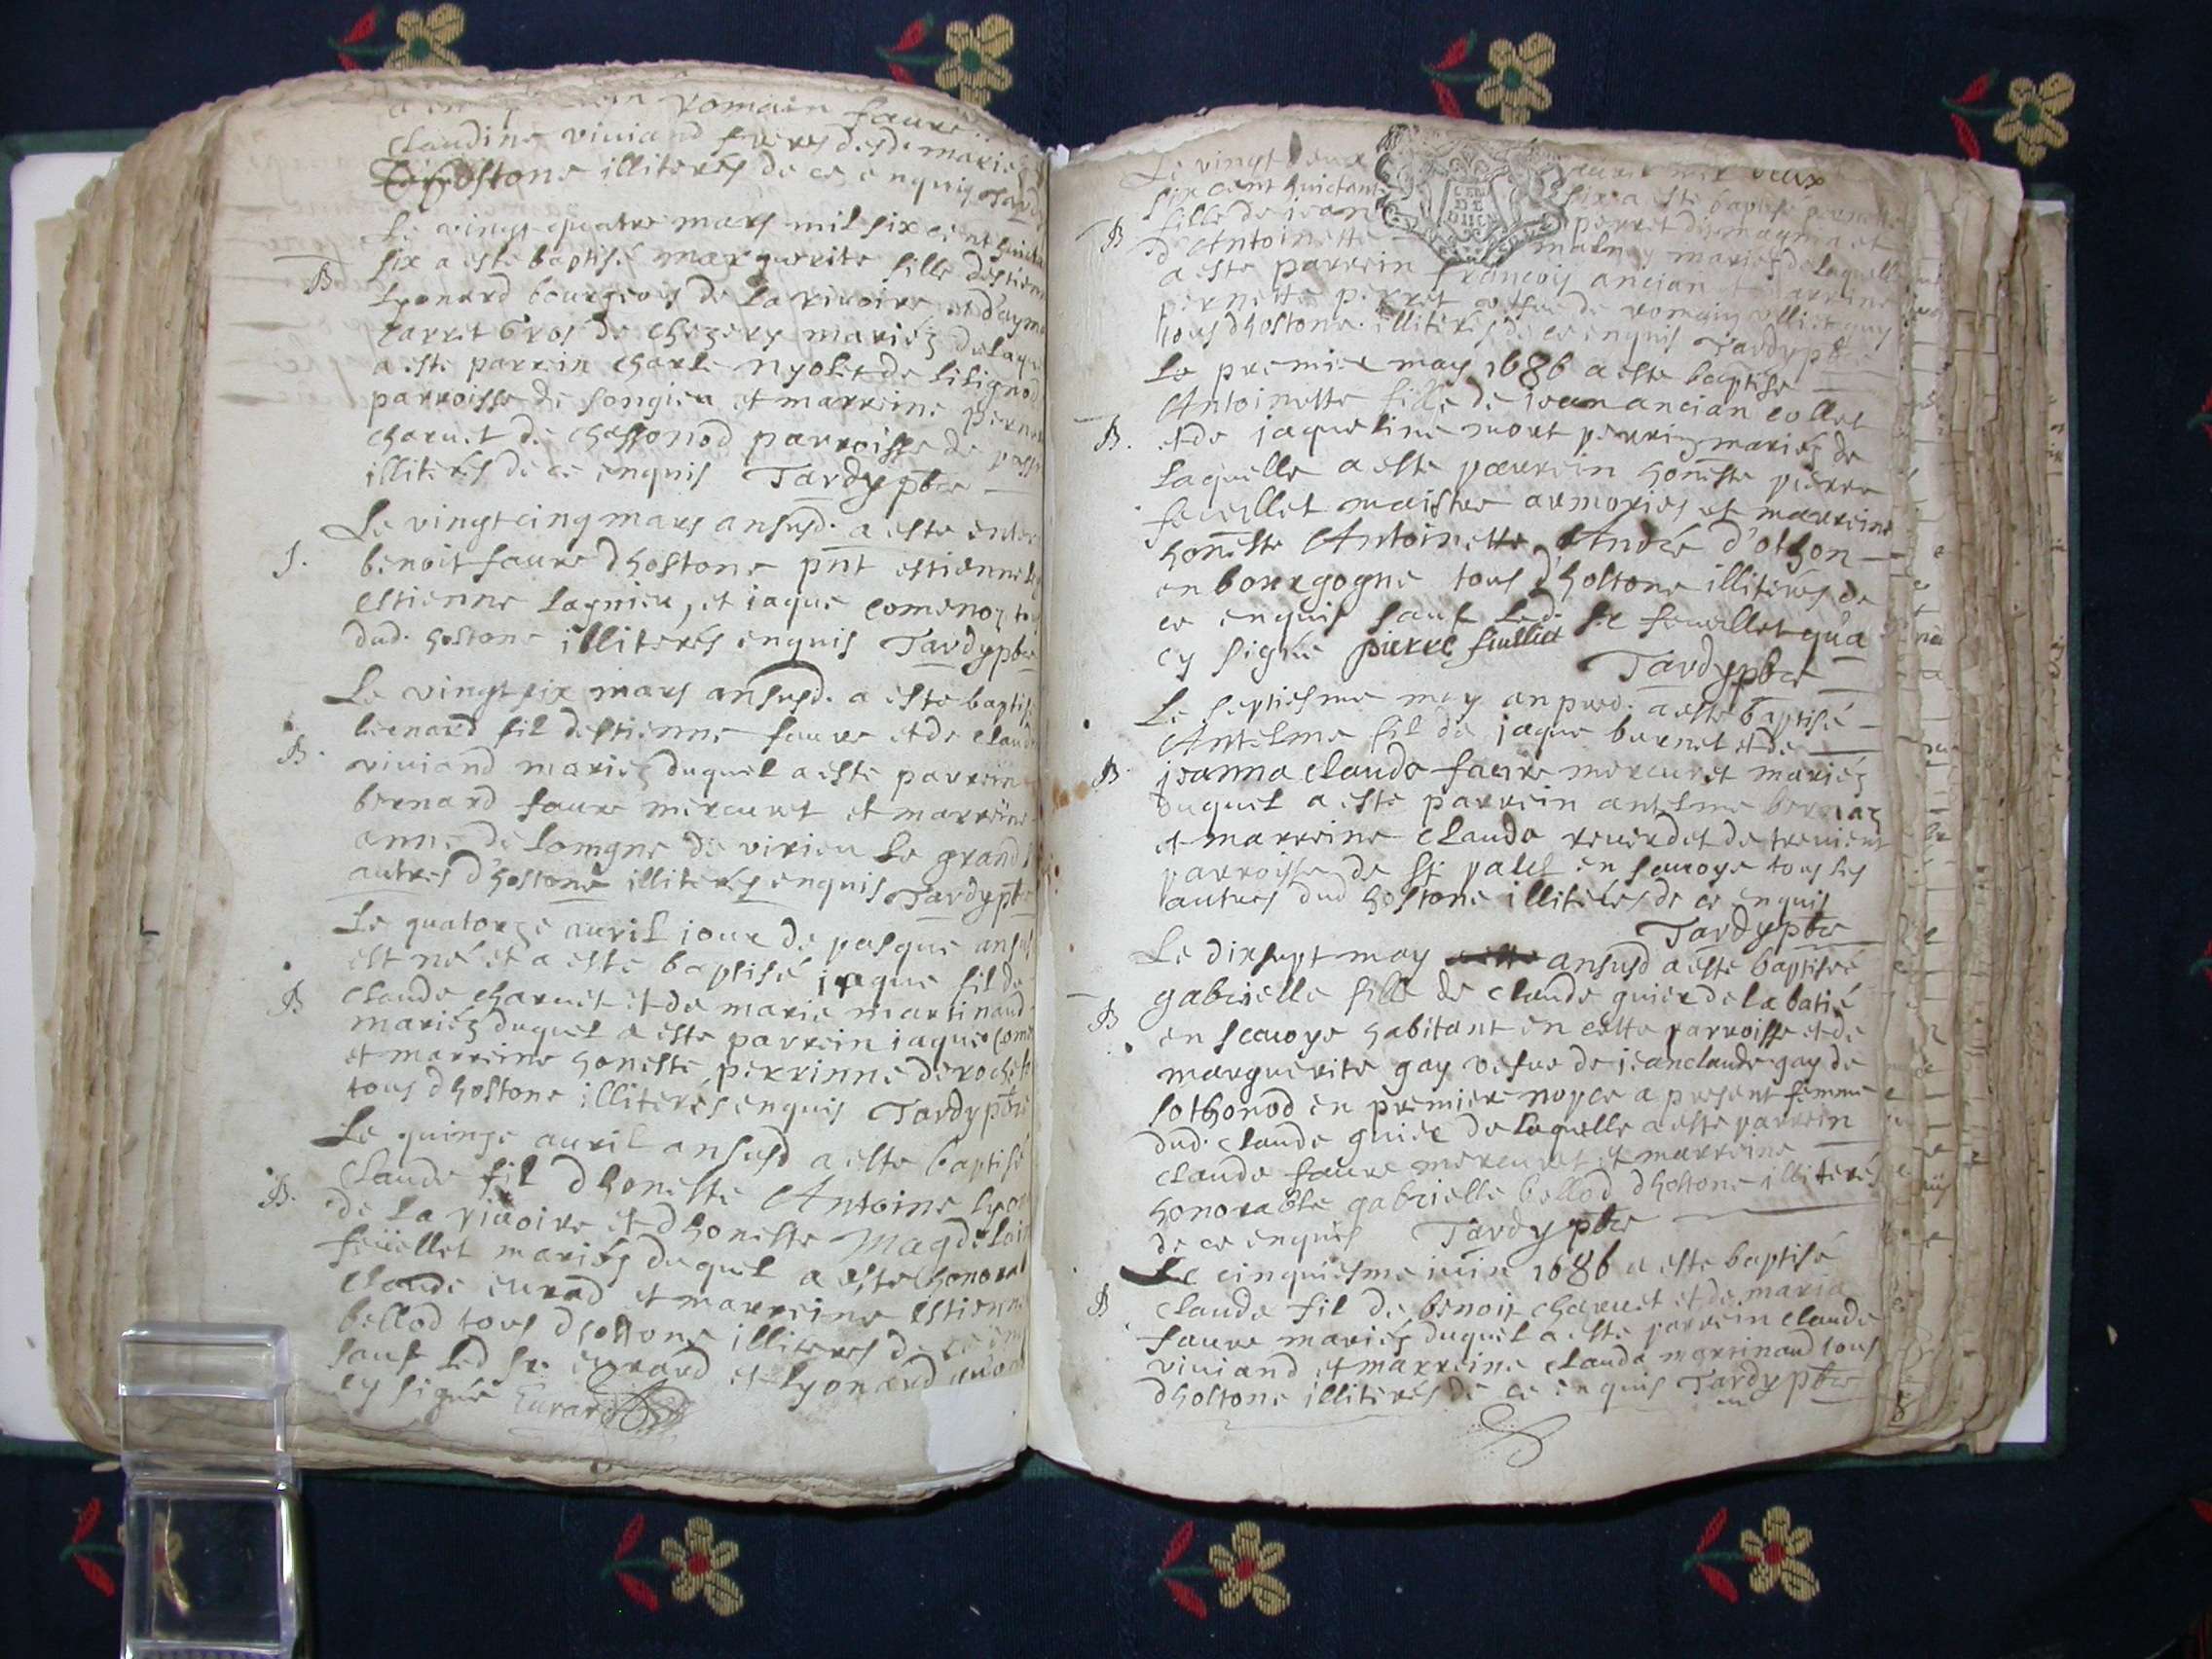 romain faure
Claudine viuiand freres desd. mariés
dhostone illiterés de ce enquis
Le vingt quatre mars mil six cent
six a este baptisé marguerite fille
B Lyonard bourgeois de La riuoire et
Carret Gros de Chezery mariéz
a este parrein Charle nyolet de Lilignod
parroisse de songieu et marreine
charuet de chassonod parroisse de
illiterés de ce enquis Tardy pbre
Le vingt cinq mars ansusd. a este
S. benoit faure dhostone pnt estienne
estienne Lagnieu, et iaque
dud. hostone illiterés enquis Tardy pbre
Le vingt six mars ansusd. a este baptisé
bernard fil destienne faure et de
B. viuiand mariéz duquel a este parrein
bernard faure mercuret et marreine
anne de Lomgne de virieu Le grand
autres dhostone illiterés enquis Tardy pbre
Le quatorze auril iour de pasque
est né et a este baptisé iaque fil de
B Claude Charuet et de marie martinaud
mariéz duquel a este parrein iaque
et marreine honeste perrinne
tous dhostone illiterés enquis Tardy pbre
Le quinze auril ansusd a este baptisé
Claude fil dhoneste Antoine
B. de La riuoire et dhoneste
feüellet mariés duquel a este
Claude eurad et marreine
bellod tous dhostone illiteres de
sauf Led sr. eurard et Lyonard
cy signé Eurard
Le vingt
six cent huictante six a este baptisé pernette
B fille de iean perret et
d'Antoinette mariés de Laquelle
a este parrein francois ancian et marreine
pernette perret de romain
tous dhostone illiterés de ce enquis Tardy pbre
Le premier may 1686 a este baptisé
Antoinette fille de iean ancian collet
B. et de iaqueline mort perrin mariéz de
Laquelle a este parrein honeste pierre
feuellet maistre et marreine
honeste Antoinette André d'othon
en bourgogne tous d'hostone illiterés de
ce enquis sauf Led. sr feuellet qu'a
cy signé pierre feullet
Tardy pbre
Le septiesme may an pred. a este baptisé
Antelme fil de iaque burnet et de
B. jeanna claude faure mercuret mariéz
duquel a este parrein antelme
et marreine Claude reuerdet de
parroisse de St. palel en sauoye tous les
autres dud hostone illiterés de ce enquis
Tardy pbre
Le dixsept may ansusd a este baptiséé
gabrielle fille de claude guier de la batié
B en scauoye habitant en cette parroisse et de
marguerite gay vefue de ieanclaude gay de
sothonod en premiere nopce a present femme
dud. Claude guier de Laquelle a este parrein
Claude faure mercuret et marreine
honorable gabrielle bellod dhostone illiterés
de ce enquis Tardy pbre
Le cinquiesme iuin 1686 a este baptisé
B Claude fil de benoit charuet et de maria
faure mariéz duquel a este parrein claude
viuiand et marreine claude martinaud tous
dhostone illiterés de ce enquis Tardy pbre